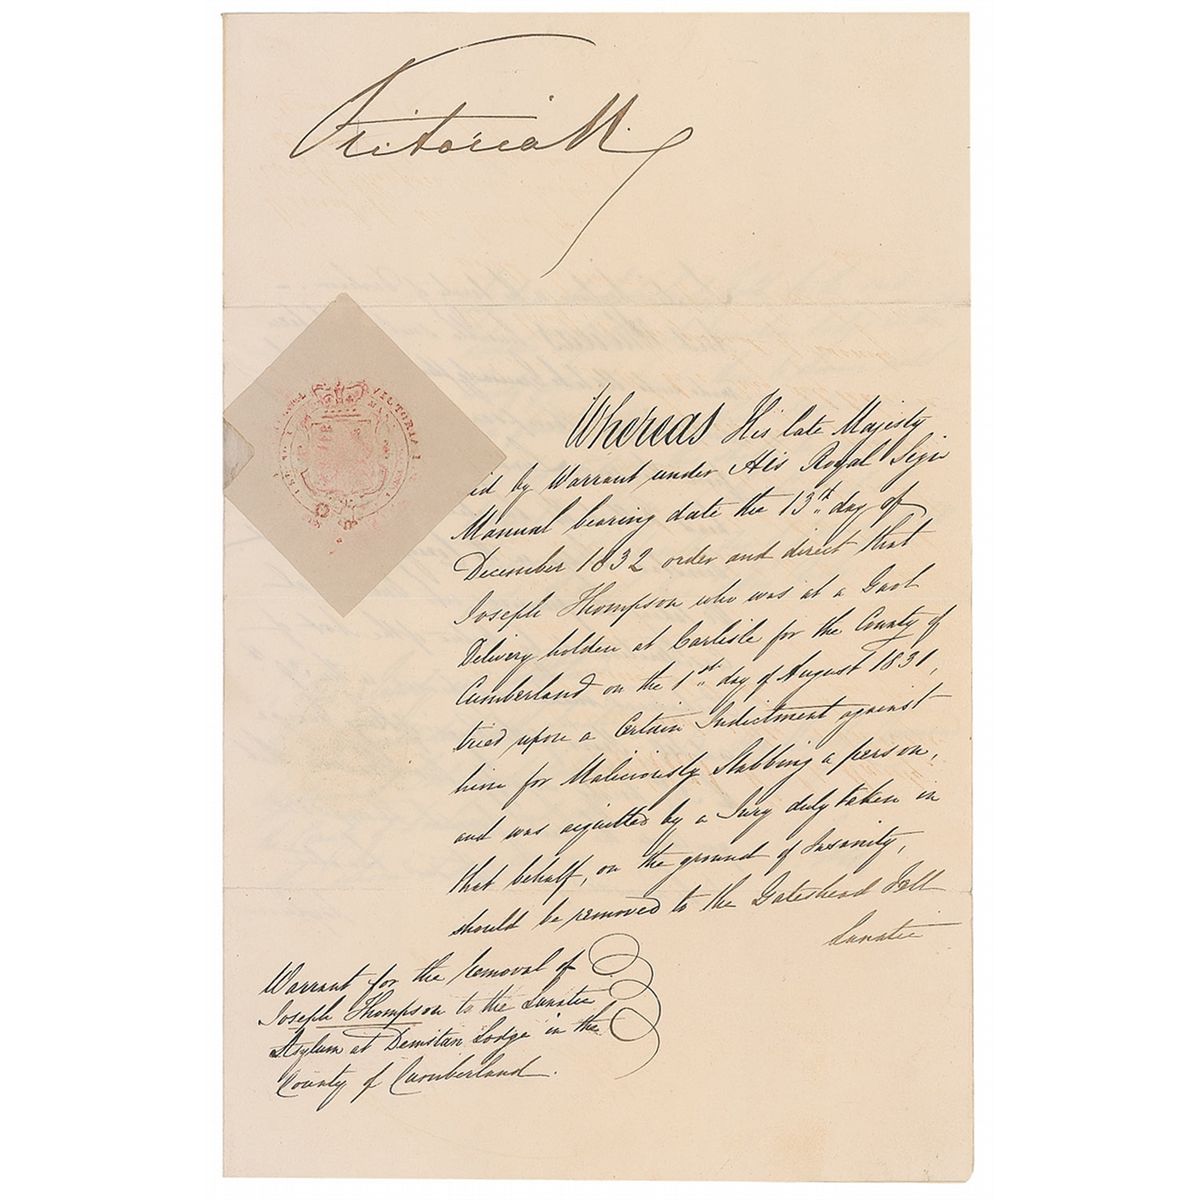 Victoria R.
VICTORIA
Whereas His late Majesty
did by Warrant under His Royal Sign
Manual bearing date the 13th day of
December 1832 order and direct that
Joseph Thompson who was at a Gaol
Delivery holden at Carlisle for the County of
Cumberland on the 1st day of August 1831,
tried upon a Certain Indictment against
him for Maliciously Stabbing a person,
and was acquitted by a Jury duly taken in
that behalf, on the ground of Insanity,
should be removed to the Gateshead Fell
Lunatic
Warrant for the removal of
Joseph Thompson to the Lunatic
Asylum at Dunstan Lodge in the
County of Cumberland.